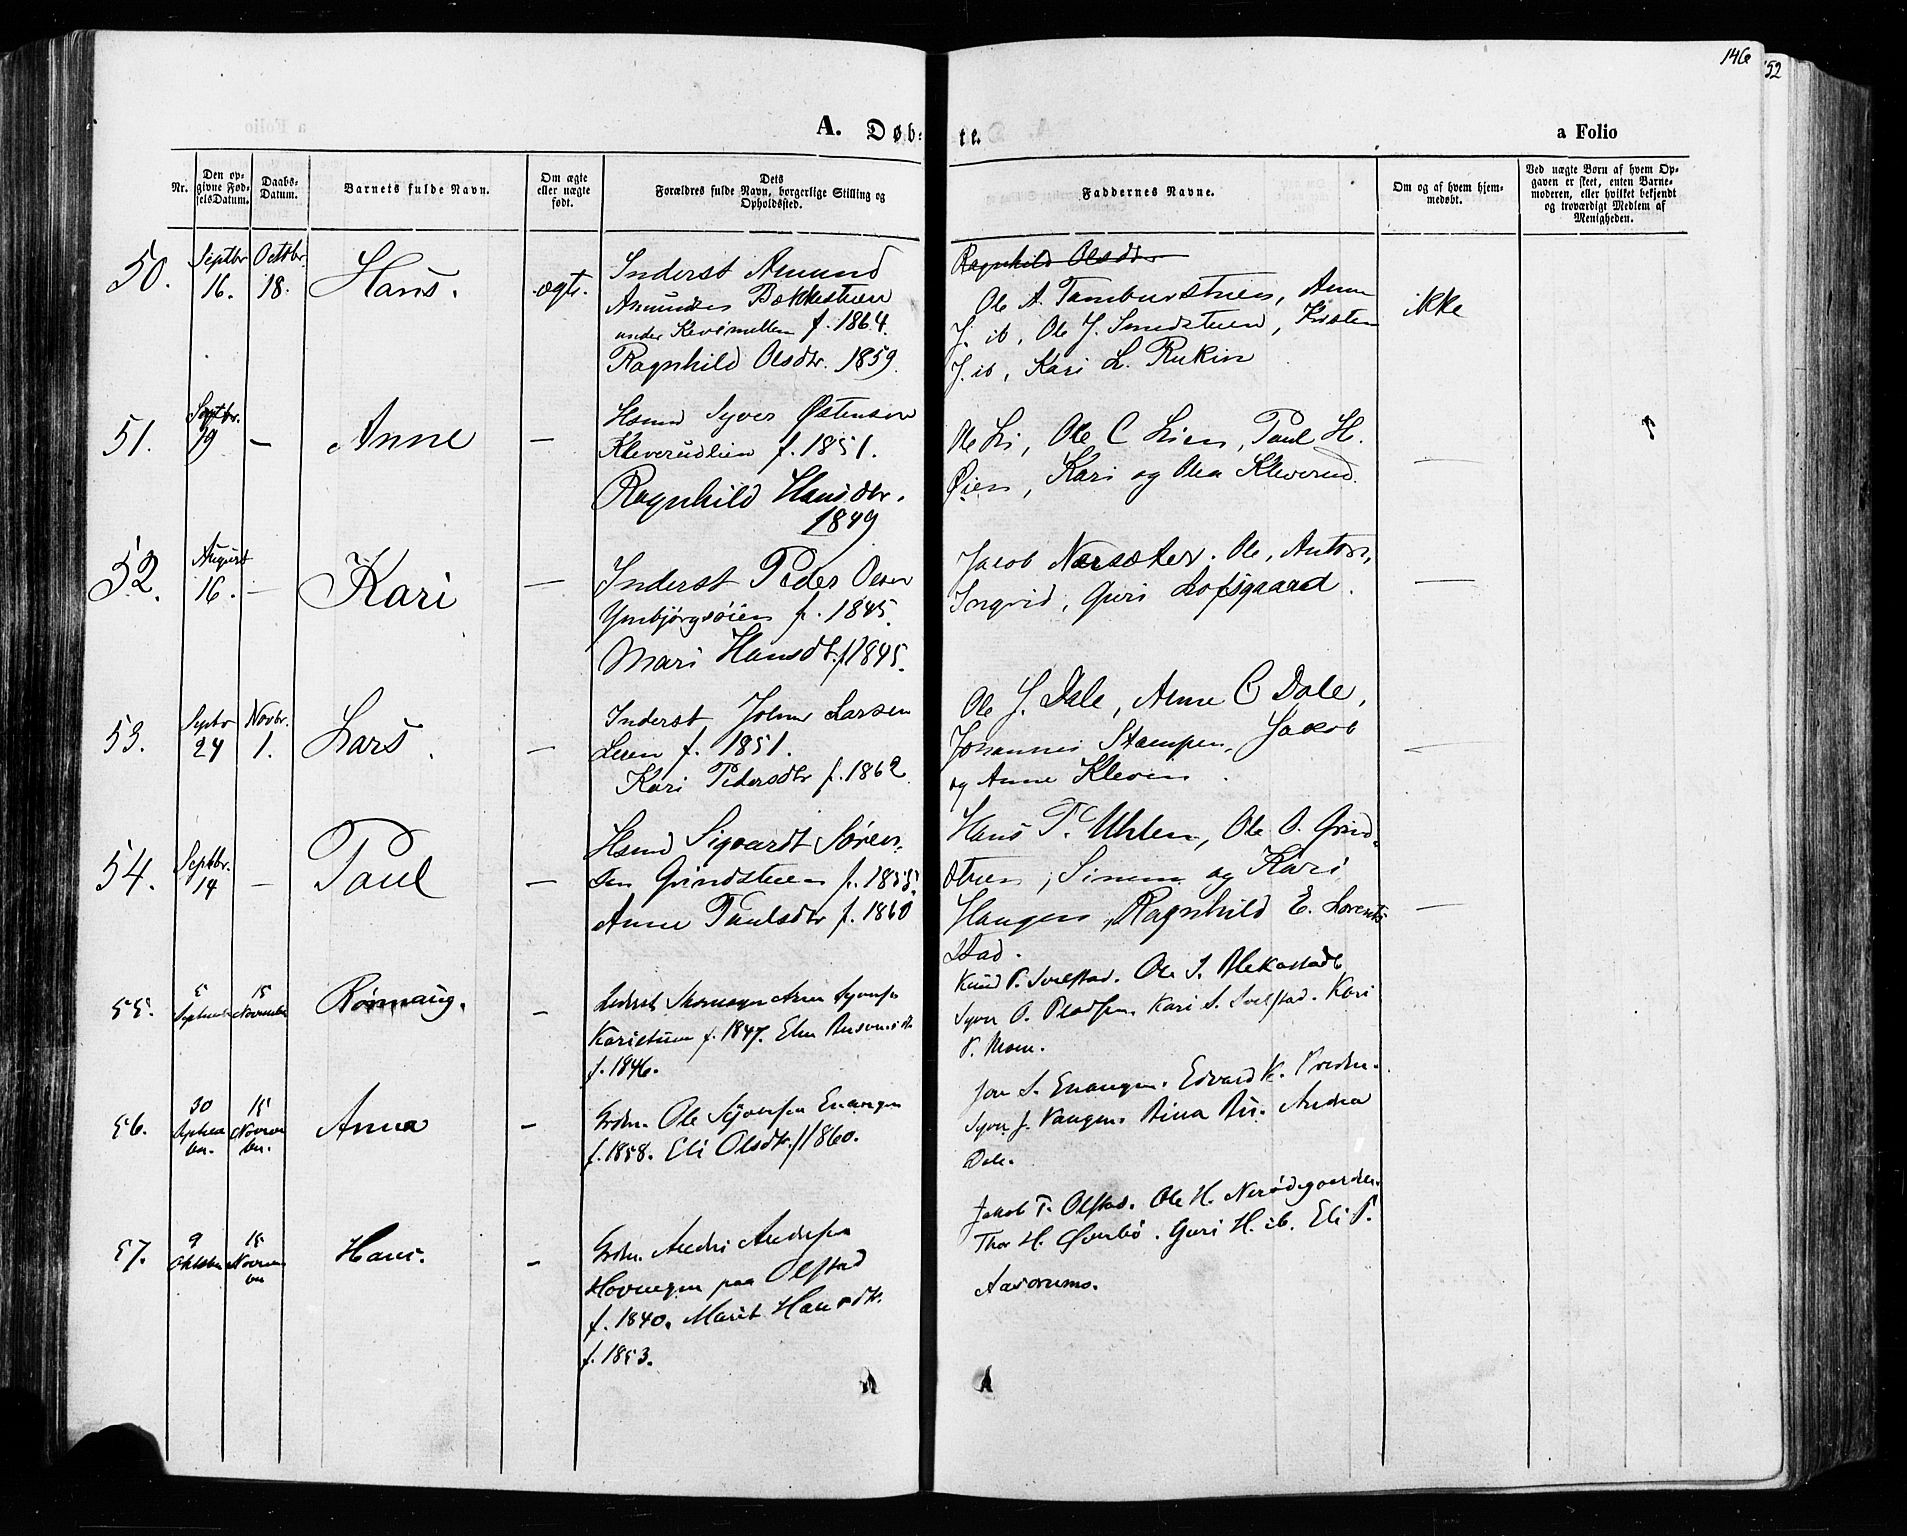 146
52
A. Døb-
te.
a Folio
Nr.
Den op-
givne Fød-
selsDatum.
Daabs-
Datum.
Barnets fulde Navn.
Om ægte
eller uægte
født.
Dets
Forældres fulde Navn, borgerlige Stilling og
Opholdssted.
Faddernes Navne.
Om og af hvem hjem-
medøbt.
Ved uægte Børn af hvem Op-
gaven er skeet, enten Barne-
moderen, eller hvilket bekjendt
og troværdigt Medlem af
Menigheden.
50.
Septbr
16.
Octbr.
18.
Hans.
ægte.
Inderst Amund
Amundsen Bækkestuen
under f. 1864.
Ragnhild Olsdtr. 1859.
Ragnhild Olsdtr
Ole A. Tamburstuen, Anne
J. ib, Ole J. Smedstuen, Kristen
J. ib, Kari L. Rukin
ikke
51.
Septbr.
19
—
Anne
—
Hsmd Syver Østensen
Kleverudlien f. 1851.
Ragnhild Hansdtr.
1849
Ole Li, Ole C Lien, Paul H.
Øien, Kari og Olea Kleverud.
—
52.
August
16.
—
Kari
—
Inderst Peder Olsen
Ymbjørgsøien f. 1845.
Mari Hansdtr. f. 1845.
Jacob Nærsæter. Ole, Anton,
Ingrid, Guri Lofsgaard.
—
53.
Septbr
24
Novbr.
1.
Lars.
—
Inderst Johan Larsen
f. 1851.
Kari Pedersdtr f. 1862
Ole J. Dale, Anne C Dale,
Johannes Stampen, Jakob
og Anne Kleven.
—
54.
Septbr.
14
—
Paul
—
Hsmd Sigvardt Søren-
sen Grindstuen f. 1858.
Anne Paulsdtr f. 1860
Hans T. Uhlen, Ole O. Grind-
stuen, Simen og Kari
Haugen, Ragnhild E. Lorents-
stad.
—
55.
5
September
15
November
Rønnaug.
—
Inderst Skomager Arne Syversen
Karistuen f. 1847. Eline
f. 1846.
Knud P. Svelstad. Ole S. Blekastad
Syver O. Kari S. Svelstad. Kari
P. Moen.
56.
30
Septem
ber.
15
Novem
ber.
Anna
—
Grdm. Ole Syversen Enangen
f. 1858. Eli Olsdtr. f. 1860.
Jon S. Enangen. Edvard K.
Syver J. Vangen. Dina Bu. Andrea
Dale.
57.
9
Oktober
15
Novem
ber
Hans.
—
Grdm. Andri Andersen
paa Olstad
f. 1840. Marit Hansdtr.
f. 1853.
Jakob T. Olstad. Ole H. Nerødegaarden.
Thor H. Øverbø. Guri H. ib. Eli P.
Aasorum.